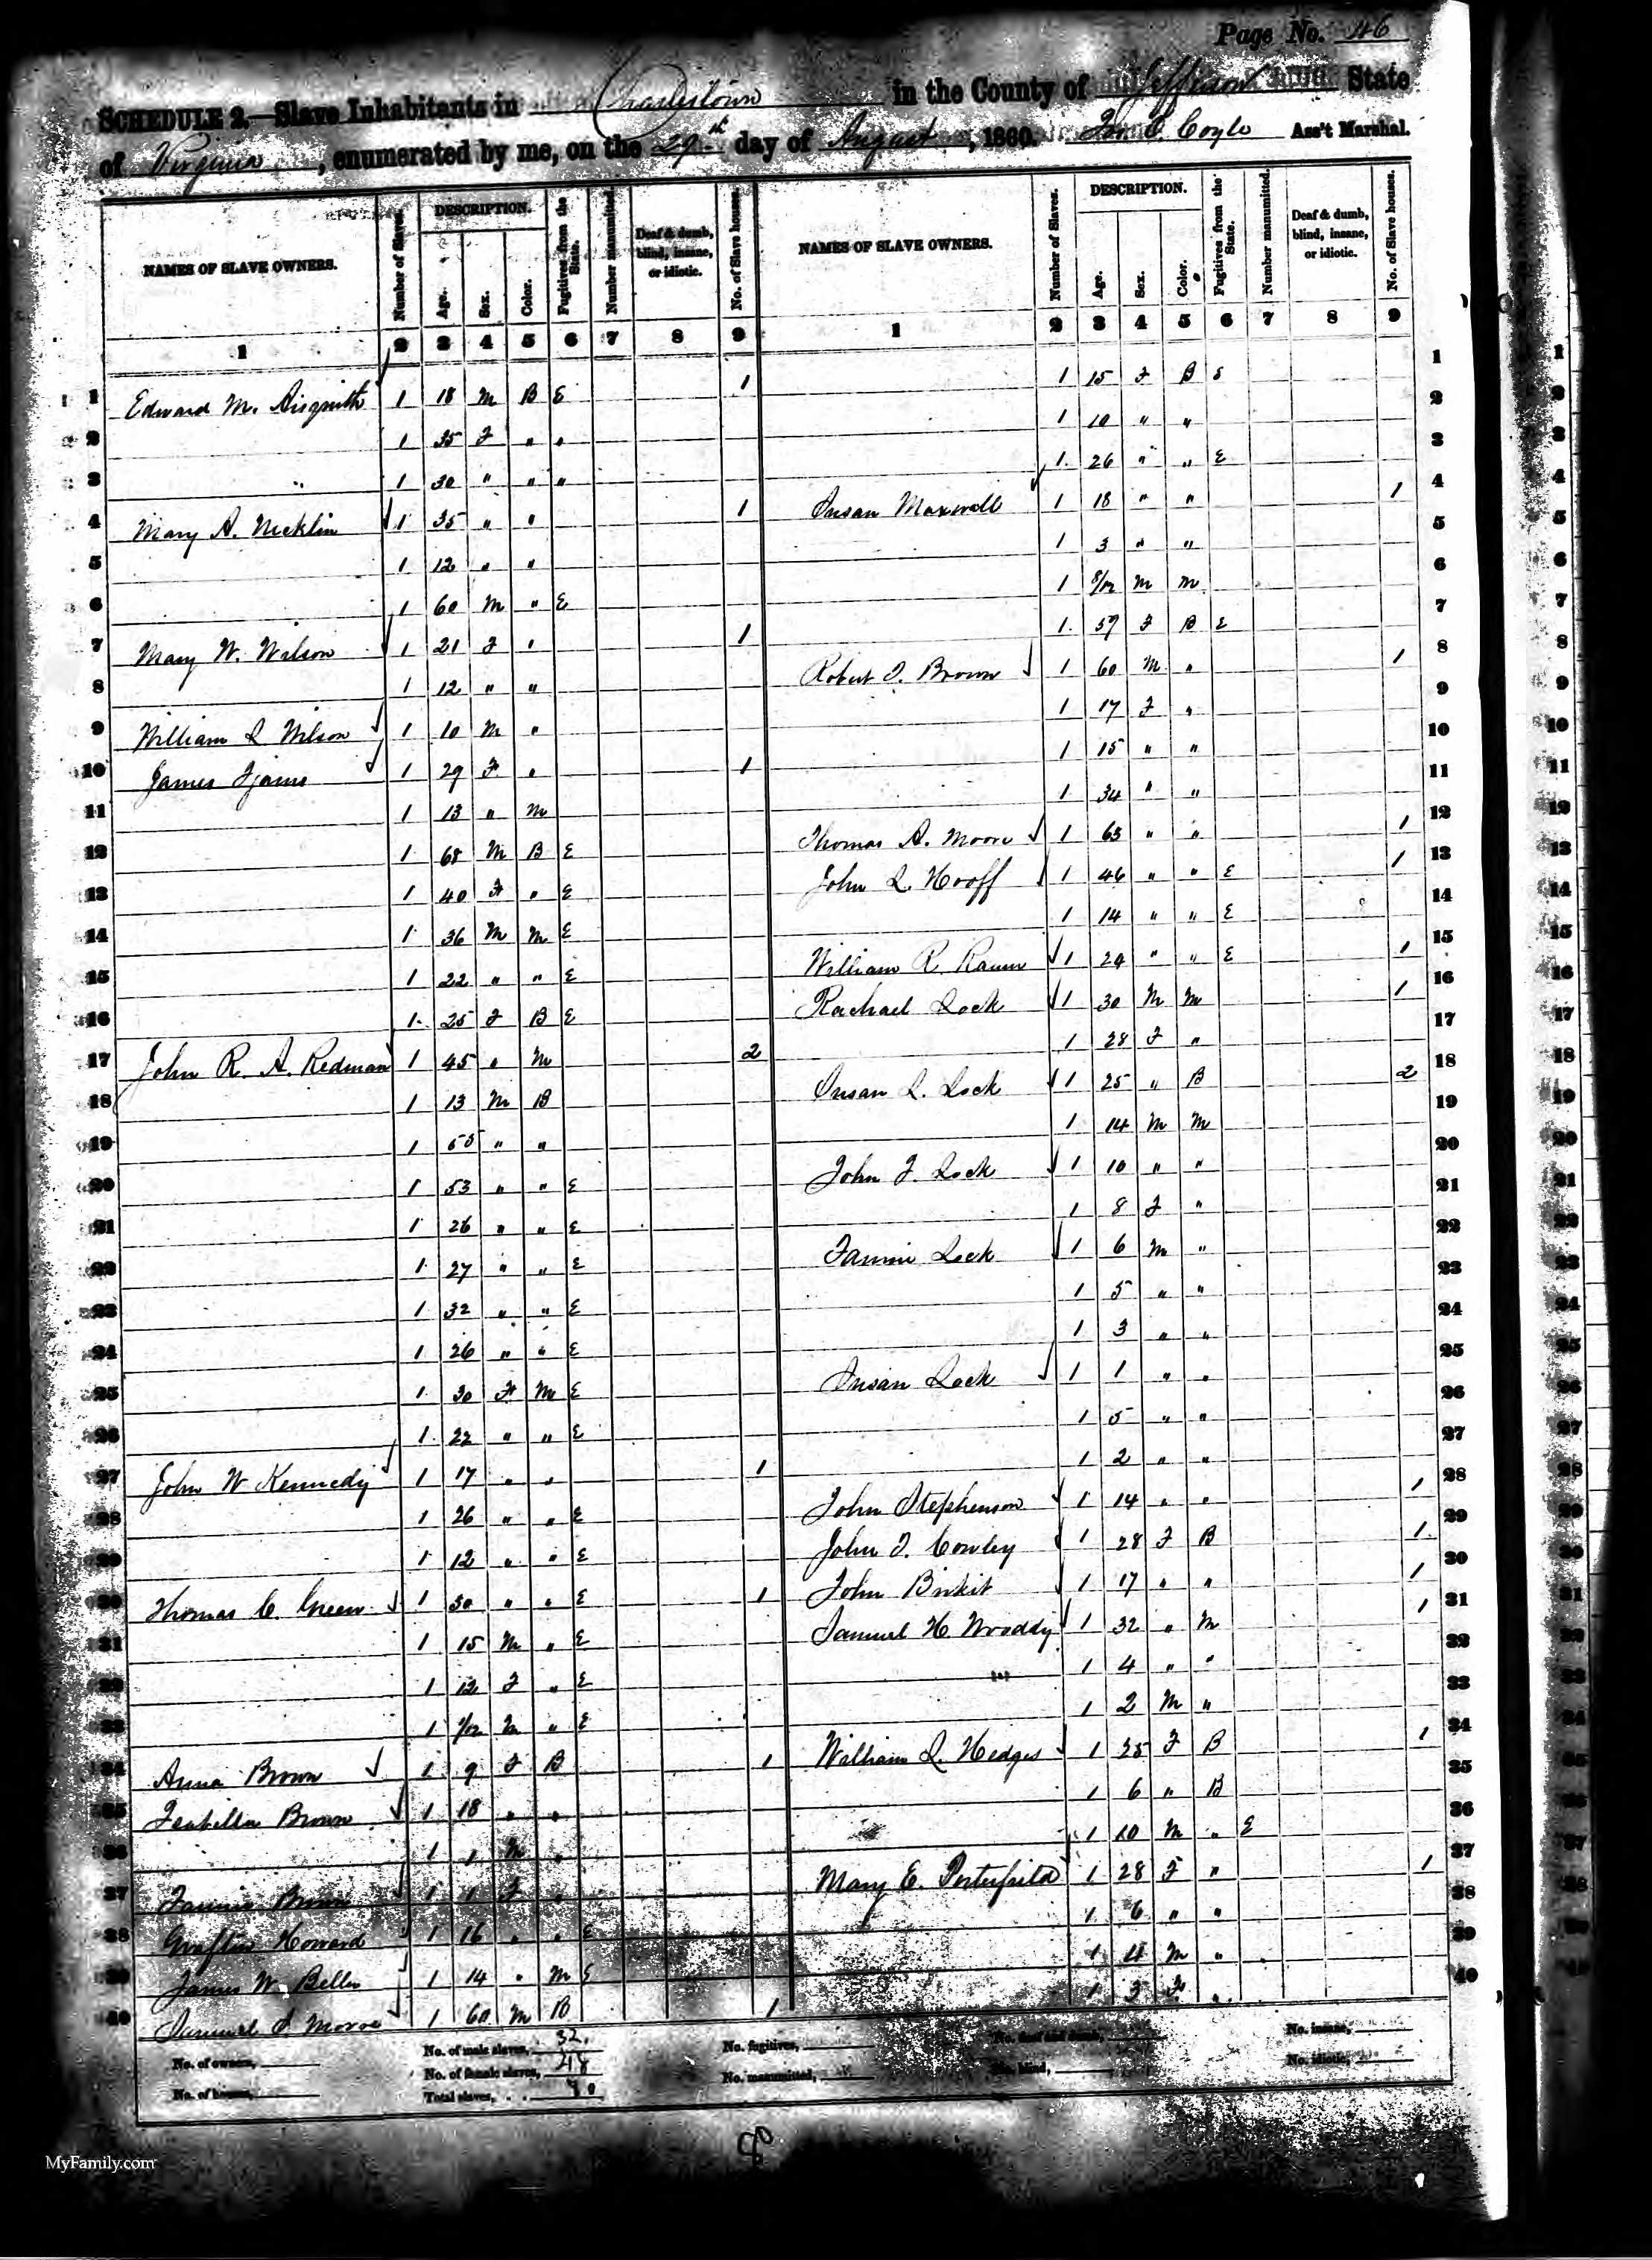 Page No. 46
SCHEDULE 2.—Slave Inhabitants in Charlestown in the County of Jefferson State
of Virginia, enumerated by me, on the 29th day of August, 1860. Coyle Ass't Marshal.
NAMES OF SLAVE OWNERS. Number of Slaves. DESCRIPTION. Age. Sex. Color. Fugitives from the State. Number manumitted. Deaf & dumb, blind, insane, or idiotic. No. of Slave houses. NAMES OF SLAVE OWNERS. Number of Slaves. DESCRIPTION. Age. Sex. Color. Fugitives from the State. Number manumitted. Deaf & dumb, blind, insane, or idiotic. No. of Slave houses.
1 2 3 4 5 6 7 8 9 1 2 3 4 5 6 7 8 9
1 Edward M. Aisquith 1 18 M B E 1
2 1 35 F " "
3 " 1 30 " " "
4 Mary A. 1 35 " " 1
5 1 12 " "
6 1 60 M " E
7 Mary W. Wilson 1 21 F " 1
8 1 12 " "
9 William L Wilson 1 10 M "
10 James 1 29 F " 1
11 1 13 " M
12 1 68 M B E
13 1 40 F " E
14 1 36 M M E
15 1 22 " " E
16 1 25 F B E
17 John R. A. Redman 1 45 " M 2
18 1 13 M B
19 1 55 " "
20 1 53 " " E
21 1 26 " " E
22 1 27 " " E
23 1 32 " " E
24 1 26 " " E
25 1 30 F M E
26 1 22 " " E
27 John W Kennedy 1 17 " " 1
28 1 26 " " E
29 1 12 " " E
30 Thomas C. Green 1 30 " " E 1
31 1 15 M " E
32 1 12 F " E
33 1 M " E
34 Anna Brown 1 9 F B 1
35 Isabella Brown 1 18 " "
36 1 1 M "
37 Fannie Brown 1 1 F "
38 Howard 1 16 " " E
39 James W. Beller 1 14 " M E
40 Samuel S Moore 1 60 M B 1
1 15 F B E 1
1 10 " " 2
1 26 " " E 3
Susan Maxwell 1 18 " " 1 4
1 3 " " 5
1 8/12 M M 6
1 57 F B E 7
Robert T. Brown 1 60 M " 1 8
1 17 F " 9
1 15 " " 10
1 34 " " 11
Thomas A. Moore 1 63 " " 1 12
John L. Hooff 1 46 " " E 1 13
1 14 " " E 14
William R. Raum 1 24 " " E 1 15
Rachael Lock 1 30 M M 1 16
1 28 F " 17
Susan L. Lock 1 25 " B 2 18
1 14 M M 19
John J. Lock 1 10 " " 20
1 8 F " 21
Fannie Lock 1 6 M " 22
1 5 " " 23
1 3 " " 24
Susan Lock 1 1 " " 25
1 5 " " 26
1 2 " " 27
John Stephenson 1 14 " " 1 28
John T. Cowley 1 28 F B 1 29
John 1 17 " " 1 30
Samuel H Wooddy 1 32 " M 1 31
1 4 " " 32
1 2 M " 33
William L. Hedges 1 25 F B 1 34
1 6 " B 35
1 10 M " E 36
Mary E. Porterfield 1 28 F " 1 37
1 6 " " 38
1 4 M " 39
1 3 F " 40
No. of owners, No. of male slaves, 32. No. fugitives, No. deaf and dumb, No. insane,
No. of houses, No. of female slaves, 48 No. manumitted, No. blind, No. idiotic,
Total slaves, . . 80
80
MyFamily.com